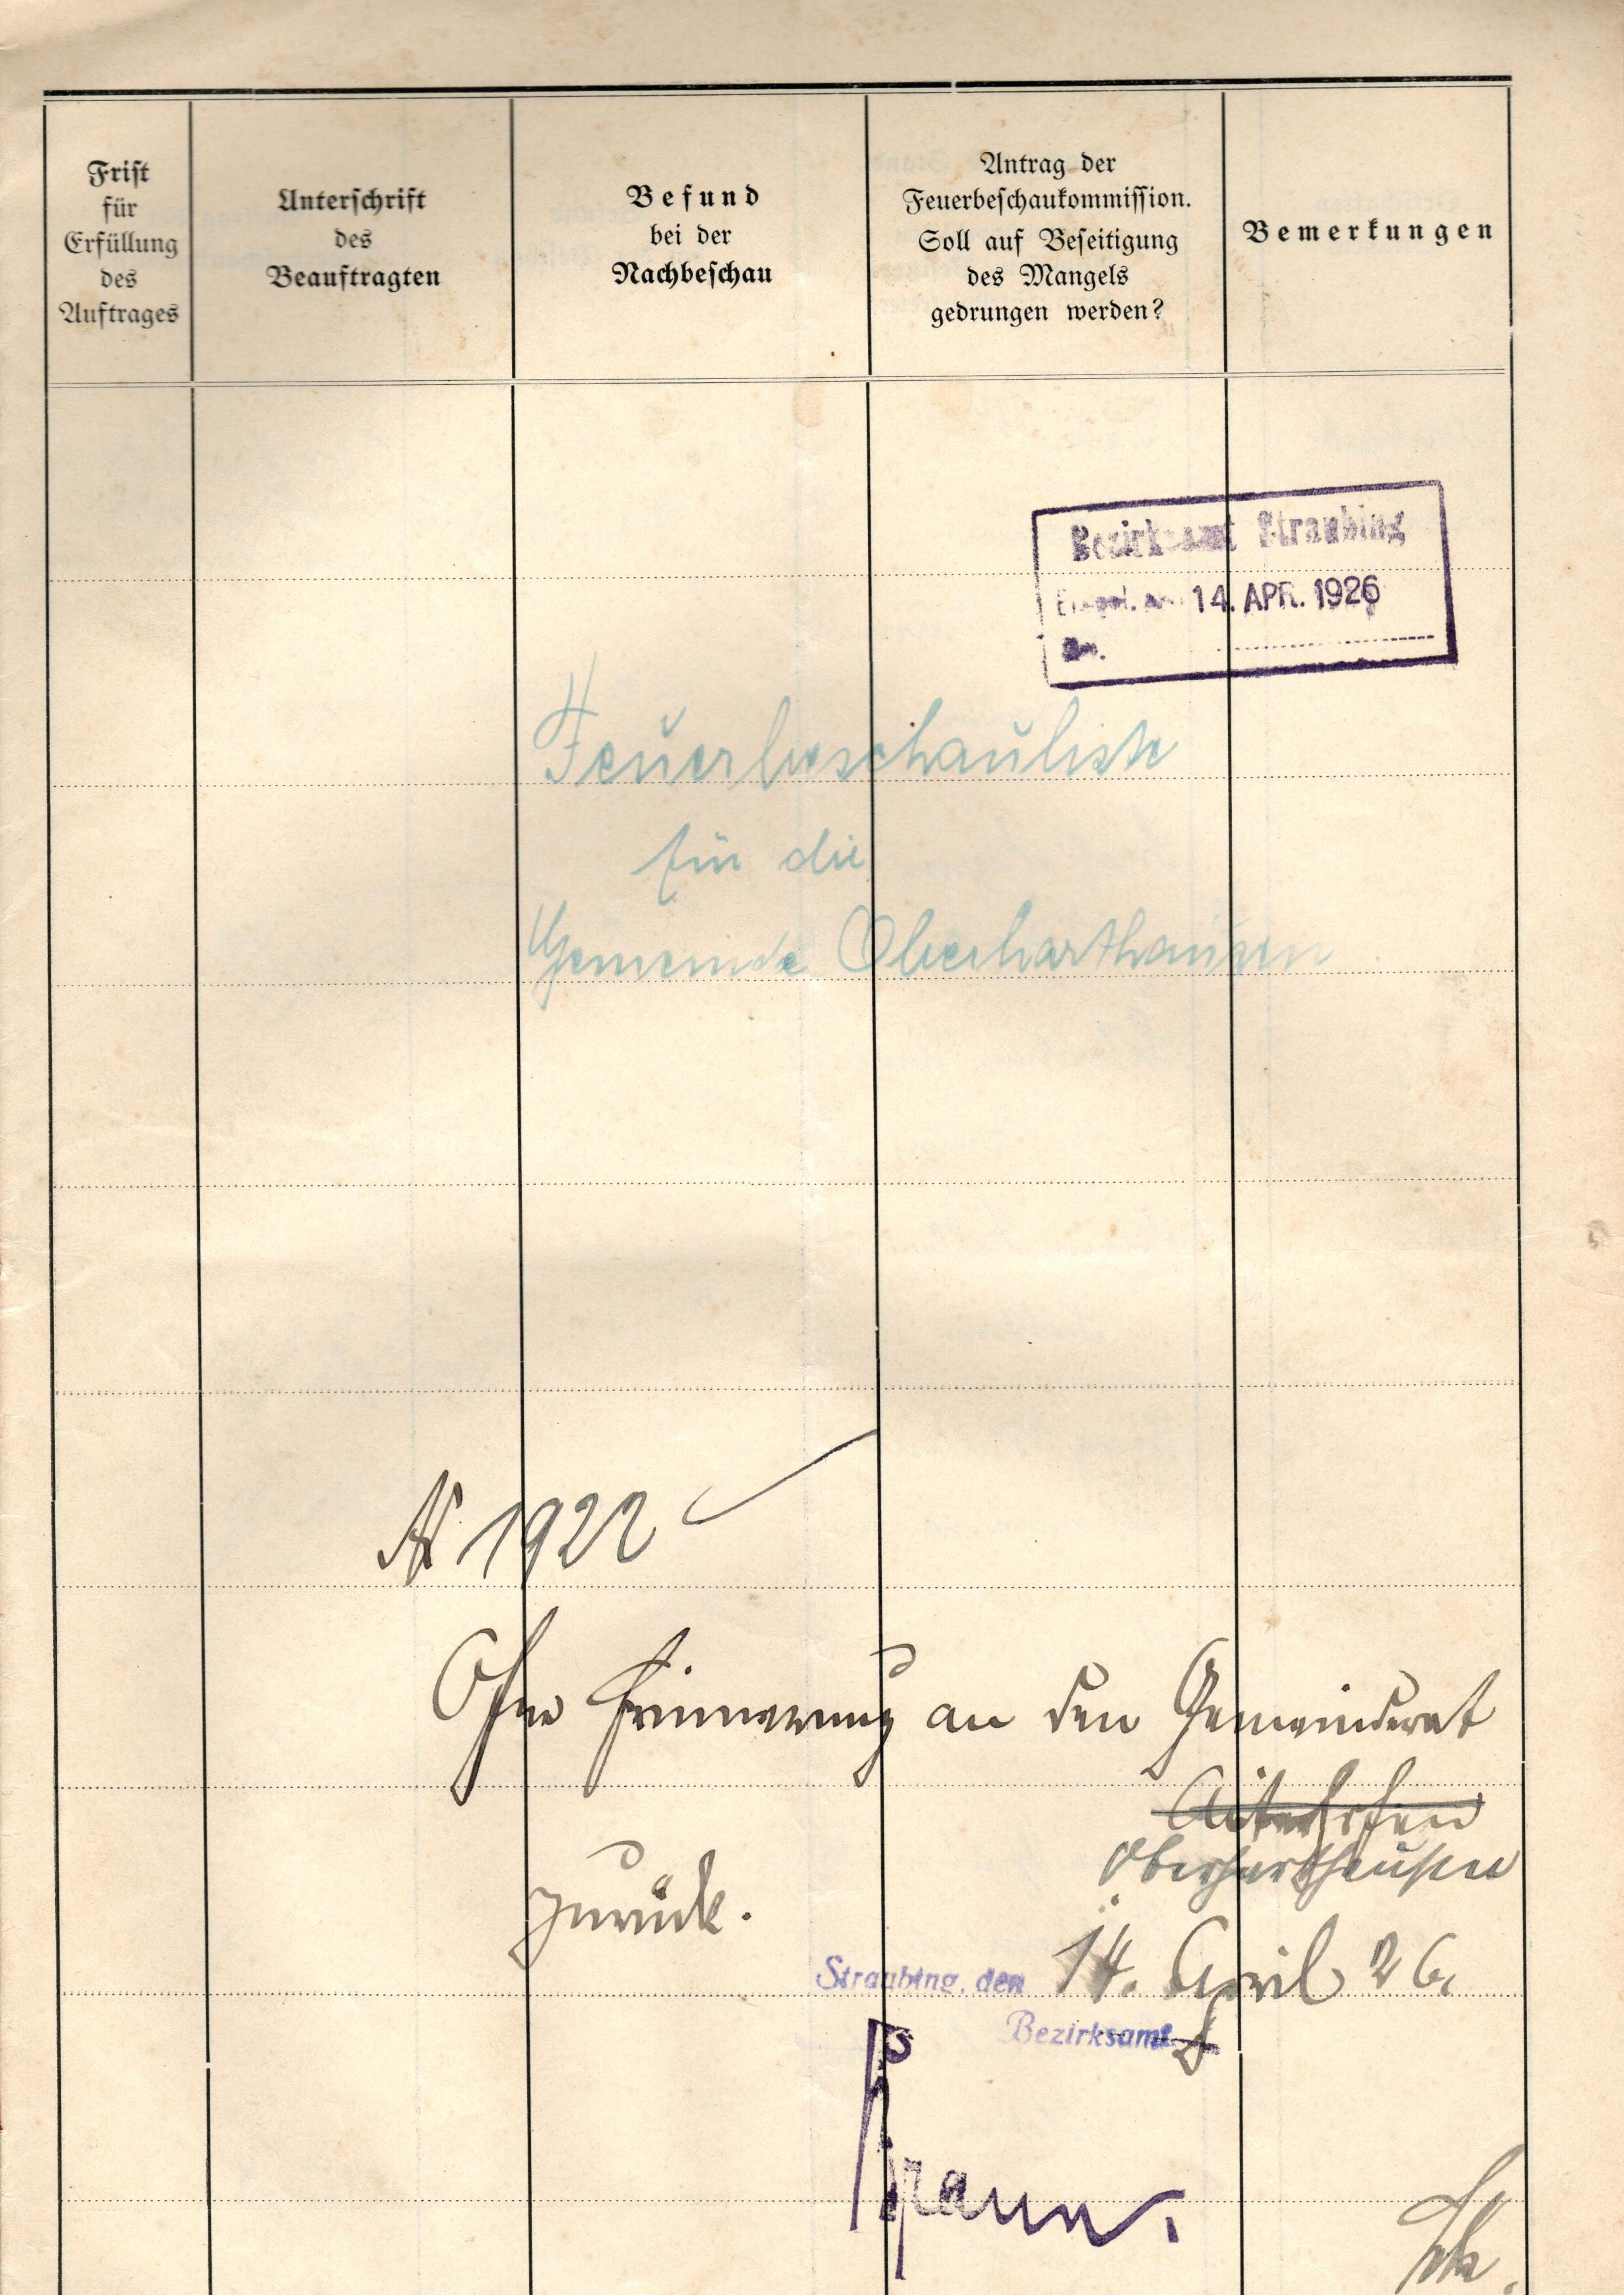 Frist
für
Erfüllung
des
Auftrages
Unterschrift
des
Beauftragten
Befund
bei der
Nachbeschau
Antrag der
Feuerbeschaukommission.
Soll auf Beseitigung
des Mangels
gedrungen werden?
Bemerkungen
Bezirksamt Straubing
14. APR. 1926
Feuerbeschauliste
für die
Gemeinde Oberharthausen
N 1922
Ohne Erinnerung an den Gemeinderat
Aiterhofen
Oberharthausen
zurück.
Straubing, den 14. April 26.
Bezirksamt